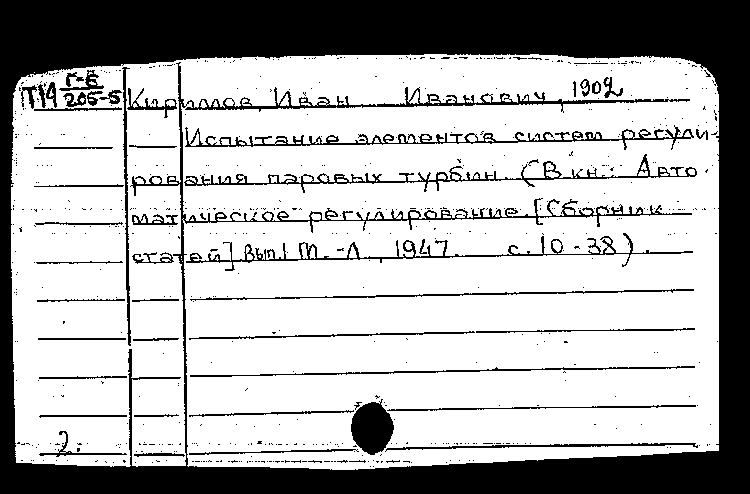 Т14 Г-Е
205-5 Кириллов, Иван Иванович, 1902
Испытание элементов систем регули-
рования паровых турбин. (В кн.: Авто-
матическое регулирование. [Сборник
статей] Вып. 1 М.-Л., 1947. с. 10-38).
2.